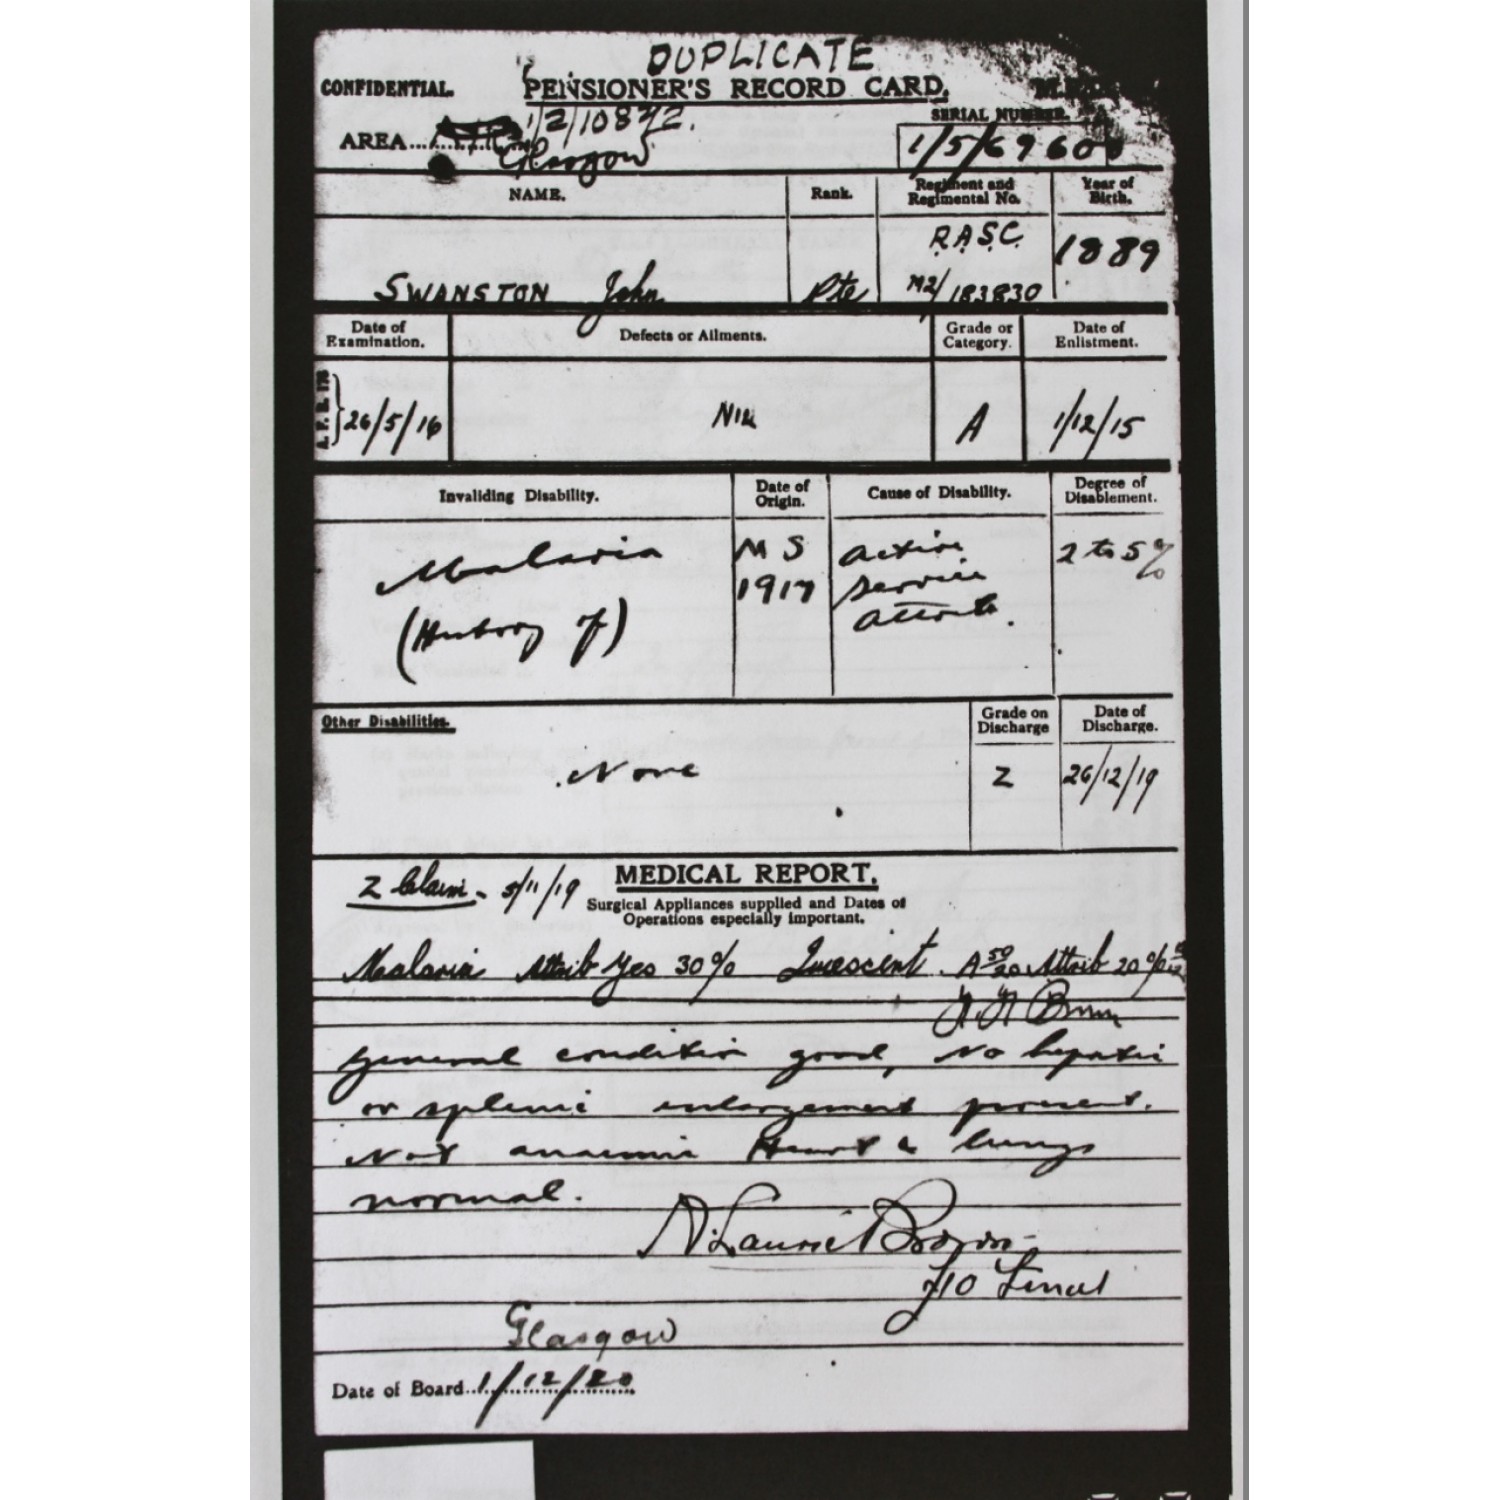 DUPLICATE
CONFIDENTIAL. PENSIONER'S RECORD CARD.
1/2/10842.
SERIAL NUMBER.
AREA... Glasgow 1/5/6960
NAME. Rank. Regiment and Regimental No. Year of Birth.
R.A.S.C. 1889
SWANSTON John Pte M2/183830
Date of Examination. Defects or Ailments. Grade or Category. Date of Enlistment.
26/5/16 NIL A 1/12/15
Invaliding Disability. Date of Origin. Cause of Disability. Degree of Disablement.
Malaria M S active 2 to 5%
1917 service
(History of) attrib.
Other Disabilities. Grade on Discharge Date of Discharge.
None Z 26/12/19
Z Claim - 5/11/19 MEDICAL REPORT.
Surgical Appliances supplied and Dates of
Operations especially important.
Malaria Attrib Yes 30% Attrib 20%
Brown
General condition good, No hepatic
or splenic enlargement present.
Not anaemic Heart & lungs
normal.
Laurie Brown
Glasgow
Date of Board 1/12/20